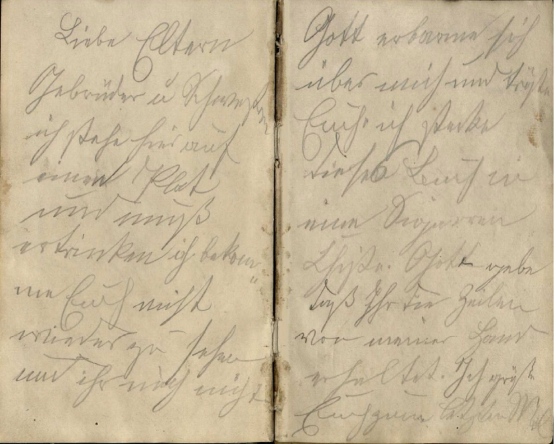 Liebe Eltern
Gebrüder u Schwestern
ich stehe hier auf
einen Plat
und muß
ertrinken ich bekom=
me Euch nicht
wieder zu sehen
und ihr mich nicht
Gott erbarme sich
über mich und tröste
Euch. ich stecke
dieses Buch in
eine Sigarren
Khiste. Gott gebe
daß Ihr die Zeilen
von meiner Hand
erhaltet. Ich grüße
Euch zum letzten Mal